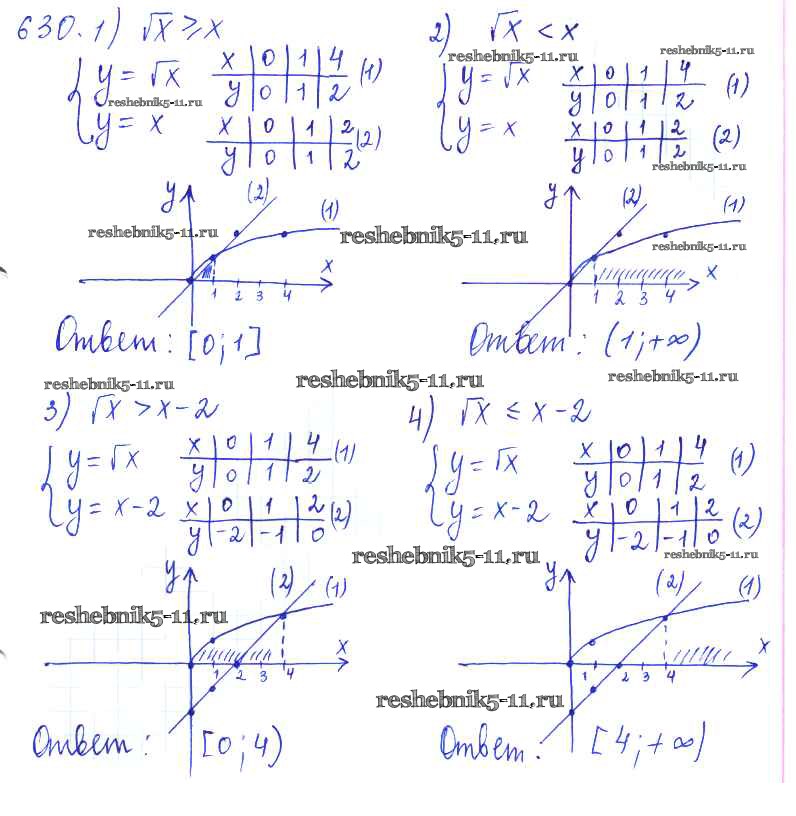 630. 1) √x ≥ x
{ y = √x   x | 0 | 1 | 4   (1)
y | 0 | 1 | 2
reshebnik5-11.ru
y = x   x | 0 | 1 | 2   (2)
y | 0 | 1 | 2
y (2) (1)
reshebnik5-11.ru
x
1 2 3 4
Ответ: [0; 1]
reshebnik5-11.ru
2) √x < x
reshebnik5-11.ru
reshebnik5-11.ru
{ y = √x   x | 0 | 1 | 4   (1)
y | 0 | 1 | 2
y = x   x | 0 | 1 | 2   (2)
y | 0 | 1 | 2
reshebnik5-11.ru
y (2) (1)
reshebnik5-11.ru
reshebnik5-11.ru
x
1 2 3 4
Ответ: (1; +∞)
reshebnik5-11.ru
reshebnik5-11.ru
3) √x > x - 2
{ y = √x   x | 0 | 1 | 4   (1)
y | 0 | 1 | 2
y = x - 2   x | 0 | 1 | 2   (2)
y | -2 | -1 | 0
y (2) (1)
reshebnik5-11.ru
x
1 2 3 4
Ответ: [0; 4)
4) √x ≤ x - 2
{ y = √x   x | 0 | 1 | 4   (1)
y | 0 | 1 | 2
y = x - 2   x | 0 | 1 | 2   (2)
y | -2 | -1 | 0
reshebnik5-11.ru
reshebnik5-11.ru
y (2) (1)
x
1 2 3 4
reshebnik5-11.ru
Ответ: [4; +∞)